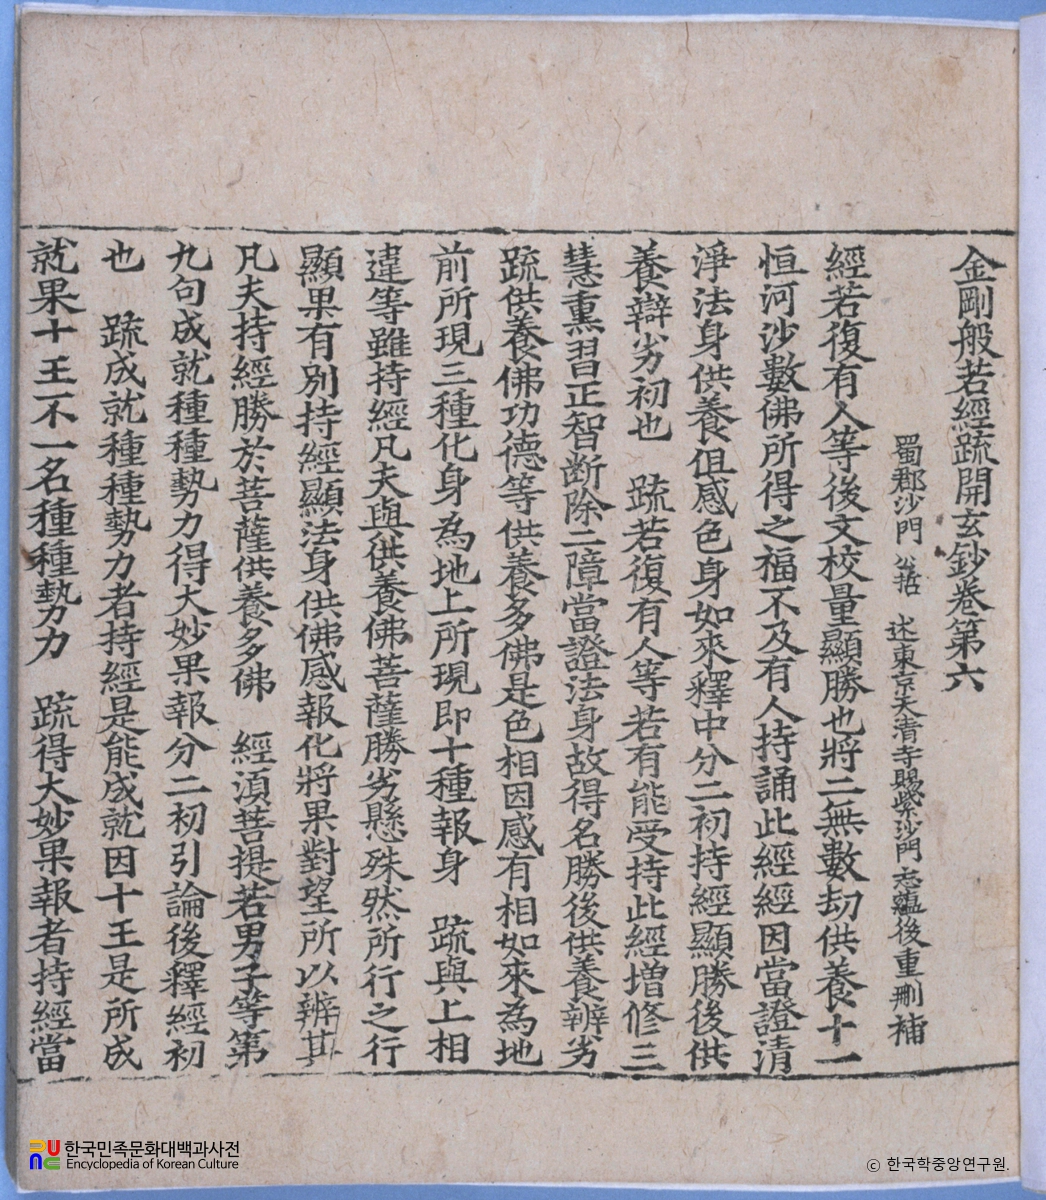 金剛般若經䟽開玄鈔卷第六
蜀郡沙門 公哲 述東京天清寺賜紫沙門志蘊後重刪補
經若復有人等後文校量顯勝也將二無數劫供養十一
恒河沙數佛所得之福不及有人持誦此經經因當證清
淨法身供養但感色身如來釋中分二初持經顯勝後供
養辯劣初也 䟽若復有人等若有能受持此經增修三
慧熏習正智断除二障當證法身故得名勝後供養辨劣
䟽供養佛功德等供養多佛是色相因感有相如來為地
前所現三種化身為地上所現即十種報身 䟽與上相
違等雖持經凡夫與供養佛菩薩勝劣懸殊然所行之行
顯果有別持經顯法身供佛感報化將果對望所以辨其
凡夫持經勝於菩薩供養多佛 經湏菩提若男子等第
九句成就種種勢力得大妙果報分二初引論後釋經初
也 䟽成就種種勢力者持經是能成就因十王是所成
就果十王不一名種種勢力 䟽得大妙果報者持經當
한국민족문화대백과사전
Encyclopedia of Korean Culture
© 한국학중앙연구원.